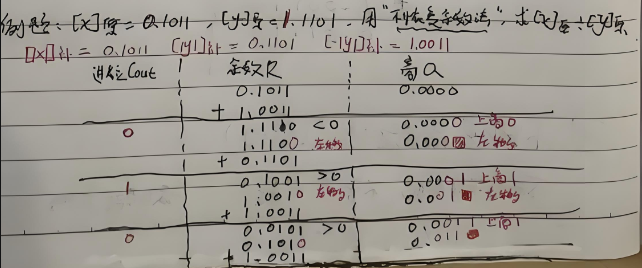 例题：[x]原=0.1011，[y]原=1.1101．用"加减交替法"，求[x]原÷[y]原
[|x|]补=0.1011 [|y|]补=0.1101 [-|y|]补=1.0011
进位Cout 余数R 商Q
0.1011 0.0000
+ 1.0011
0 1.1110 <0 0.0000 上商0
1.1100 左移 0.000 左移
+ 0.1101
1 0.1001 >0 0.0001 上商1
1.0010 左移 0.001 左移
+ 1.0011
0 0.0101 >0 0.0011 上商1
0.1010 0.011
+ 1.0011